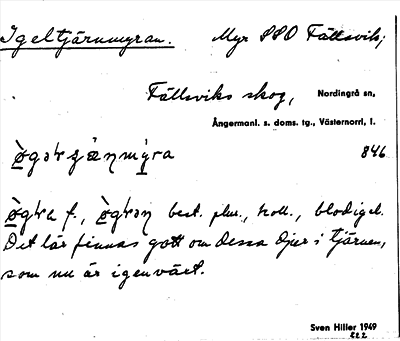 Igeltjärnmyran. Myr SSO Fällsvik;
Fällsviks skog, Nordingrå sn,
Ångermanl. s. doms. tg., Västernorrl. l.
846
best. plur., koll., blodigel.
Det lär finnas gott om dessa djur i tjärnen,
som nu är igenväxt.
Sven Hiller 1949